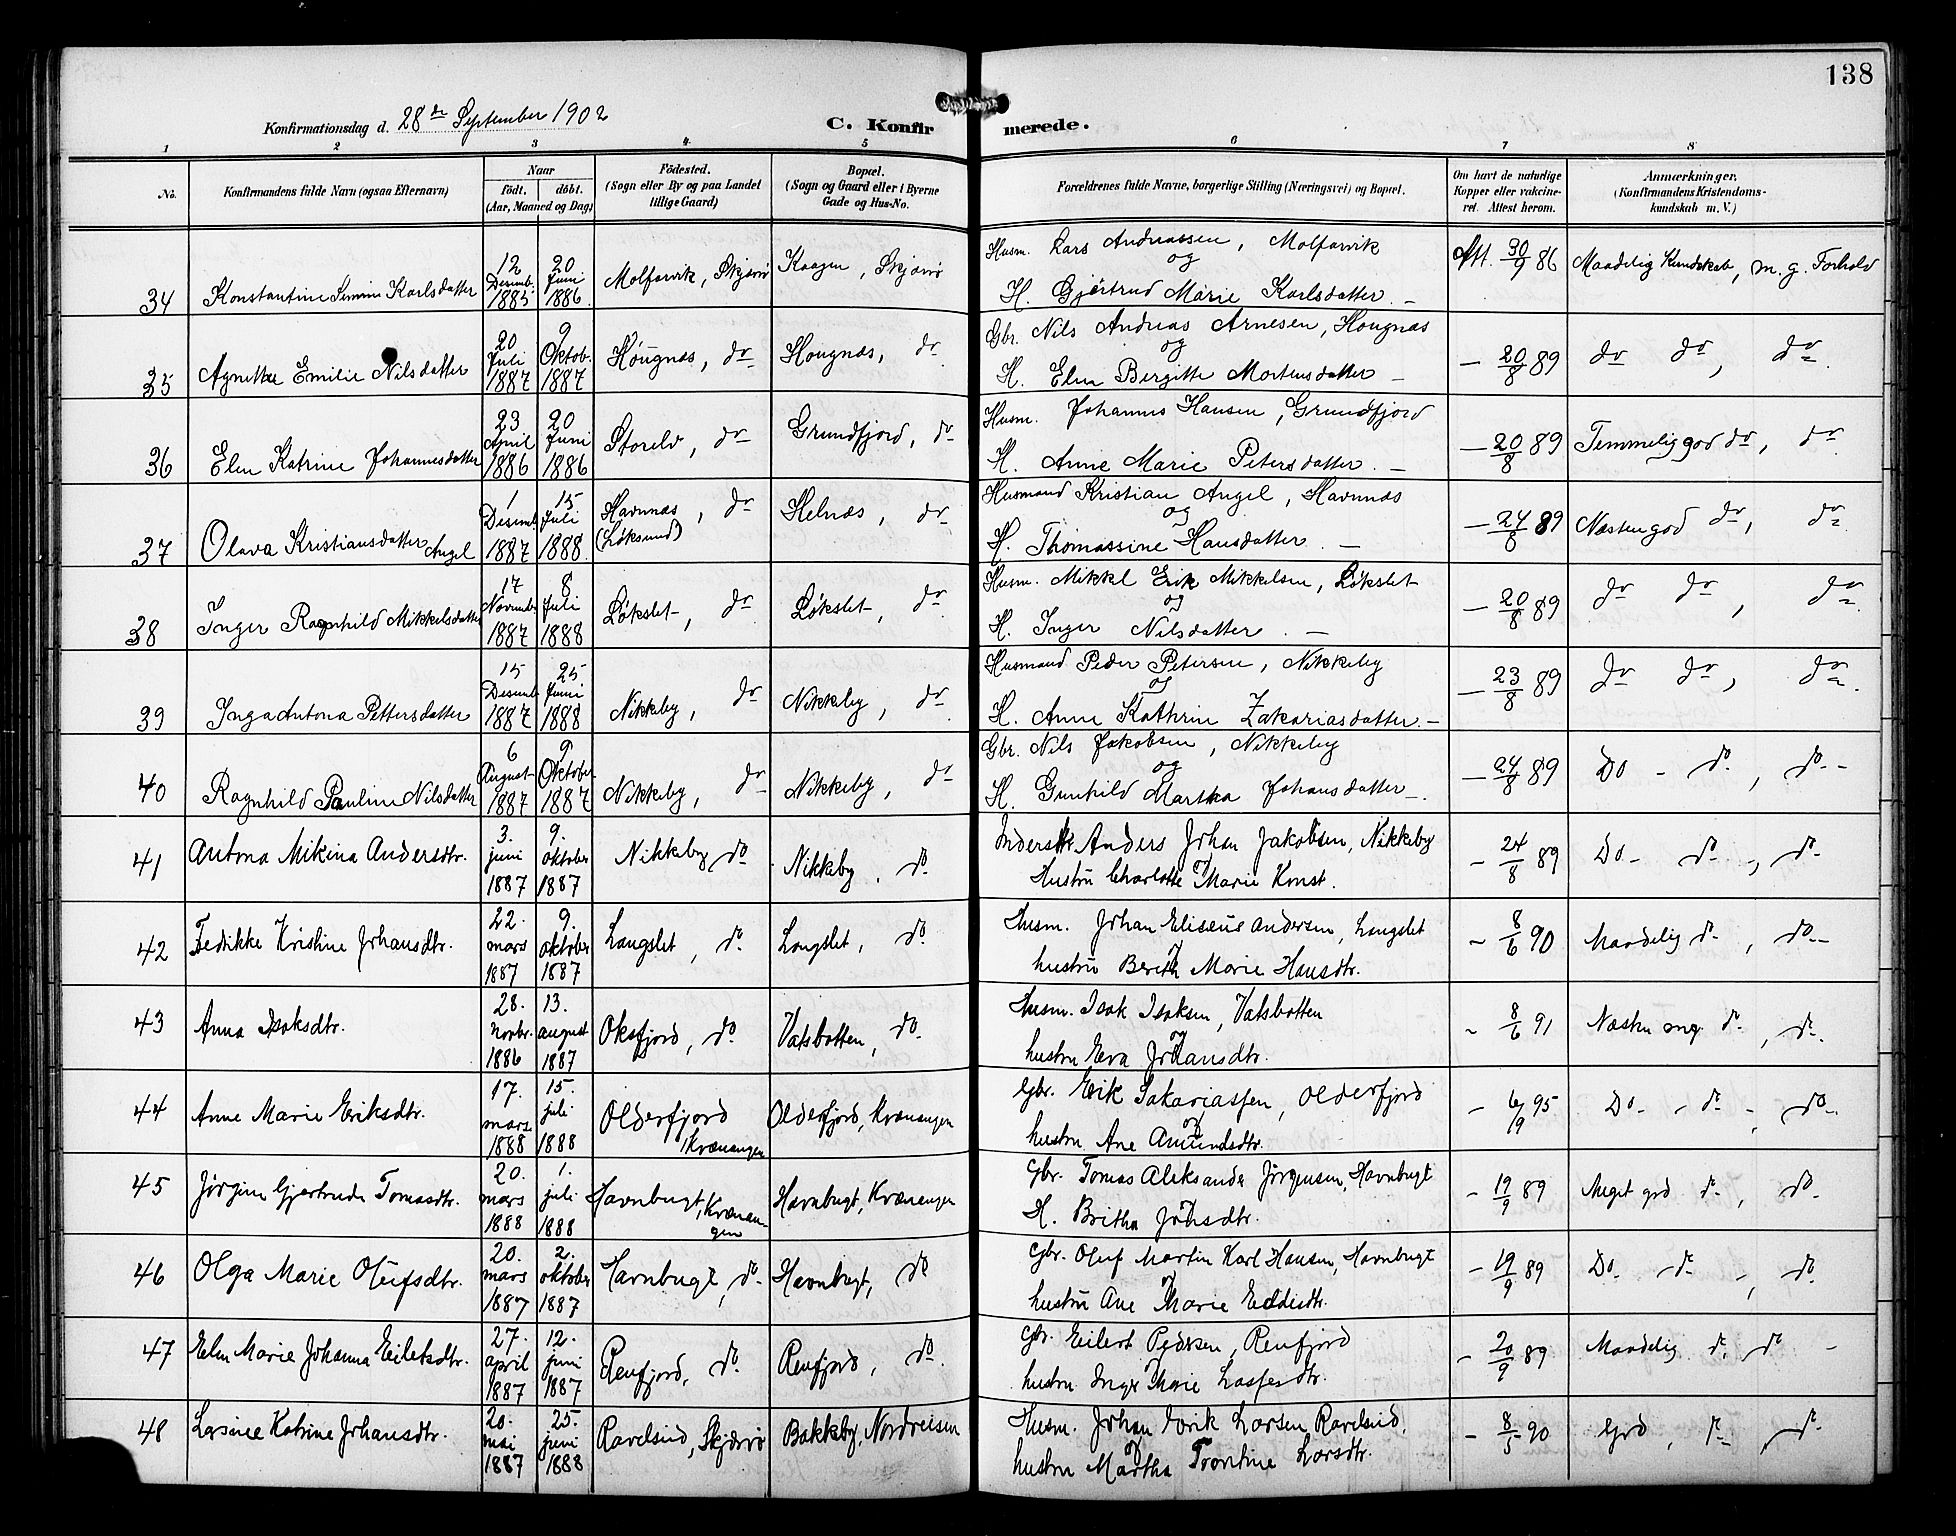 138
Konfirmationsdag d. 28de September 1902
C. Konfirmerede.
1 2 3 4 5 6 7 8
No.
Konfirmandens fulde Navn (ogsaa Efternavn)
Naar
født. døbt.
(Aar, Maaned og Dag)
Födested.
(Sogn eller By og paa Landet
tillige Gaard)
Bopæl.
(Sogn og Gaard eller i Byerne
Gade og Hus-No.
Forældrenes fulde Navne, borgerlige Stilling (Næringsvei) og Bopæl.
Om havt de naturlige
Kopper eller vakcine-
ret. Attest herom.
Anmærkninger.
(Konfirmandens Kristendoms-
kundskab m. V.)
34 Konstantine Karlsdatter 12 Desemb. 1885 20 Juni 1886 Molfarvik, Skjærvø Kaagen, Skjærvø
Husm. Lars Andreassen, Molfarvik
og
H. Gjertrud Marie Karlsdatter. —
Att. 30/9 86 Maadelig Kundskab, m. g. Forhold
35 Agnethe Emilie Nilsdatter 20 Juli 1887 9 Oktob. 1887 Hougnæs, do Hougnæs, do
Gbr. Nils Andreas Arnesen, Hougnæs
og
H. Elen Bergitte Mortensdatter —
— 20/8 89 do do, do.
36 Elen Katrine Johannesdatter 23 April 1886 20 Juni 1886 Storelv, do Grundfjord, do
Husm. Johannes Hansen, Grundfjord
H. Anne Marie Petersdatter. —
— 20/8 89 Temmelig god do, do
37 Olava Kristiansdatter Angel 1 Desemb. 1887 15 Juli 1888 Havnnæs, do (Løksund) Helnæs, do
Husmand Kristian Angel, Havnnæs
og
H. Thomassine Hansdatter. —
— 24/8 89 Næsten god do, do
38 Inger Ragnhild Mikkelsdatter 17 Novemb. 1887 8 Juli 1888 Løkslet, do Løkslet, do
Husm. Mikkel Erik Mikkelsen, Løkslet
og
H. Inger Nilsdatter. —
— 20/8 89 do do, do.
39 Inga Antona Pettersdatter 15 Desemb. 1887 25 Juni 1888 Nikkeby, do Nikkeby, do
Husmand Peder Petersen, Nikkeby
og
H. Anne Kathrin Zakariasdatter. —
— 23/8 89 do do, do.
40 Ragnhild Pauline Nilsdatter 6 August 1887 9 Oktober 1887 Nikkeby, do Nikkeby, do
Gbr. Nils Jakobsen, Nikkeby
og
H. Gunhild Martha Johansdatter —.
— 24/8 89 Do - do, do -
41 Antona Mikina Andersdtr. 3. juni 1887 9. oktober 1887 Nikkeby do Nikkeby, do
Anders Johan Jakobsen, Nikkeby
Hustru Charlotte Marie Konst.
- 24/8 89 Do - do -, do -
42 Fedikke Kristine Johansdtr. 22. mars 1887 9. oktober 1887 Langslet, do Langslet, do
Husm. Johan Eliseus Andersen, Langslet
og
hustru Berith Marie Hansdtr.
- 8/6 90 Maadelig do, do -
43 Anna Isaksdtr. 28. Novbr. 1886 13. august 1887 Oksfjord, do Vatsbotten, do
Husm. Isak Isaksen, Vatsbotten
og
hustru Eva Johansdtr.
- 8/6 91 Næsten mg. do, do.
44 Anne Marie Eriksdtr. 17. mars 1888 15. juli 1888 Olderfjord, Kvænangen Olderfjord, Kvænangen
Gbr. Erik Sakariassen, Olderfjord
og
hustru Ane Amundsdtr.
- 6/9 95 Do - do -, do -
45 Jørgine Gjertrude Tomasdtr. 20. mars 1888 1. juli 1888 Havnbugt, Kvænangen Havnbugt, Kvænangen
Gbr. Tomas Aleksander Jørgensen, Havnbugt
og
H. Britha Johsdtr.
- 19/9 89 Meget god do, do
46 Olga Marie Olufsdtr. 20. mars 1887 2. oktober 1887 Havnbugt, do Havnbugt, do
Gbr. Oluf Martin Karl Hansen, Havnbugt
og
hustru Ane Marie Eddisdtr.
- 19/9 89 Do - do -, do
47 Elen Marie Johanna Eiletsdtr. 27. april 1887 12. juni 1887 Renfjord, do Renfjord, do
Gbr. Eilert Pedersen, Renfjord
og
hustru Inger Marie Lassesdtr.
- 20/9 89 Maadelig do, do -
48 Larsine Katrine Johansdtr. 20. mai 1887 25. juni 1888 Ravelsund, Skjærvø Bakkeby, Nordreisen
Husm. Johan Erik Larsen Ravelsund.
og
hustru Martha Trontine Larsdtr.
- 8/5 90 God, do, do